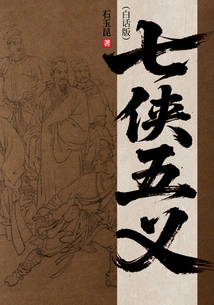 七侠五义
（白话版）
石玉昆 著